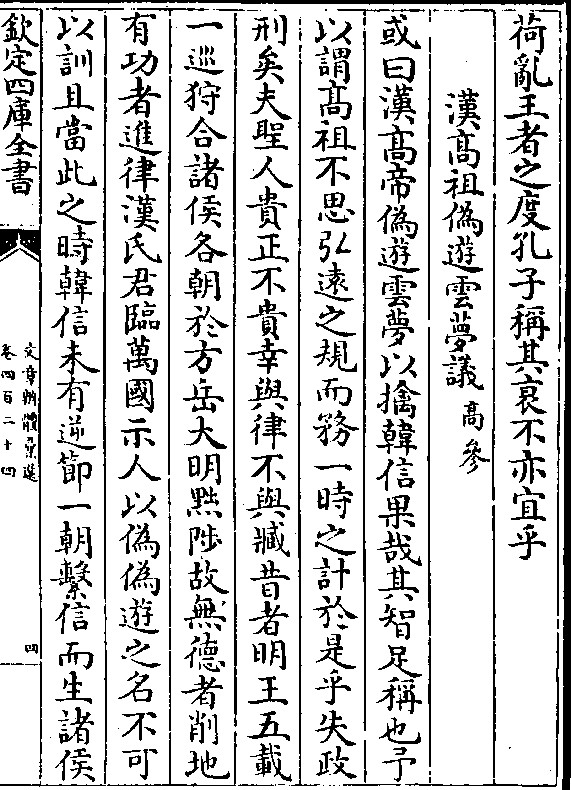 荷亂王者之度孔子稱其衰不亦宜乎
漢髙祖偽遊雲夢議 髙參
或曰漢髙帝偽遊雲夢以擒韓信果哉其智足稱也予
以謂髙祖不思弘遠之規而務一時之計於是乎失政
刑矣夫聖人貴正不貴幸與律不與臧昔者明王五載
一巡狩合諸侯各朝於方岳大明黜陟故無徳者削地
有功者進律漢氏君臨萬國示人以偽偽遊之名不可
以訓且當此之時韓信未有逆節一朝繫信而生諸侯
欽定四庫全書
文章辨體彚選
卷四百二十四
四